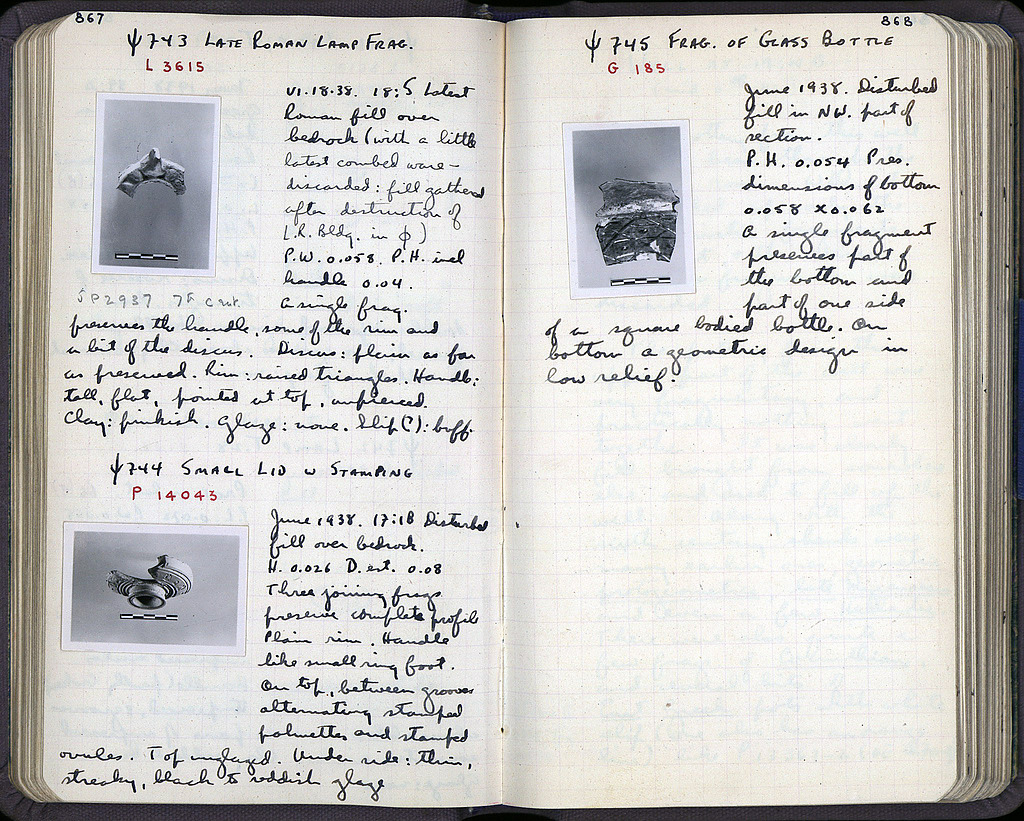 867
ψ743 LATE ROMAN LAMP FRAG.
L 3615
VI.18.38. 18:5 Latest
Roman fill over
bedrock (with a little
latest combed ware –
discarded: fill gathered
after destruction of
L.R. Bldg. in φ)
P.W. 0.058. P.H. incl
handle 0.04.
A single frag.
SP2937 7th Cent.
preserves the handle, some of the rim and
a bit of the discus. Discus: plain as far
as preserved. Rim: raised triangles. Handle:
tall, flat, pointed at top, unpierced.
Clay: pinkish. Glaze: none. Slip(?): buff.
ψ744 SMALL LID W STAMPING
P 14043
June 1938. 17:18 Disturbed
fill over bedrock.
H. 0.026 D. est. 0.08
Three joining frags
preserve complete profile
Plain rim. Handle
like small ring foot.
On top, between grooves
alternating stamped
palmettes and stamped
ovules. Top unglazed. Under side: thin,
streaky, black to reddish glaze
868
ψ745 FRAG. OF GLASS BOTTLE
G 185
June 1938. Disturbed
fill in NW. part of
section.
P.H. 0.054 Pres.
dimensions of bottom
0.058 x 0.062
A single fragment
preserves part of
the bottom and
part of one side
of a square bodied bottle. On
bottom a geometric design in
low relief.